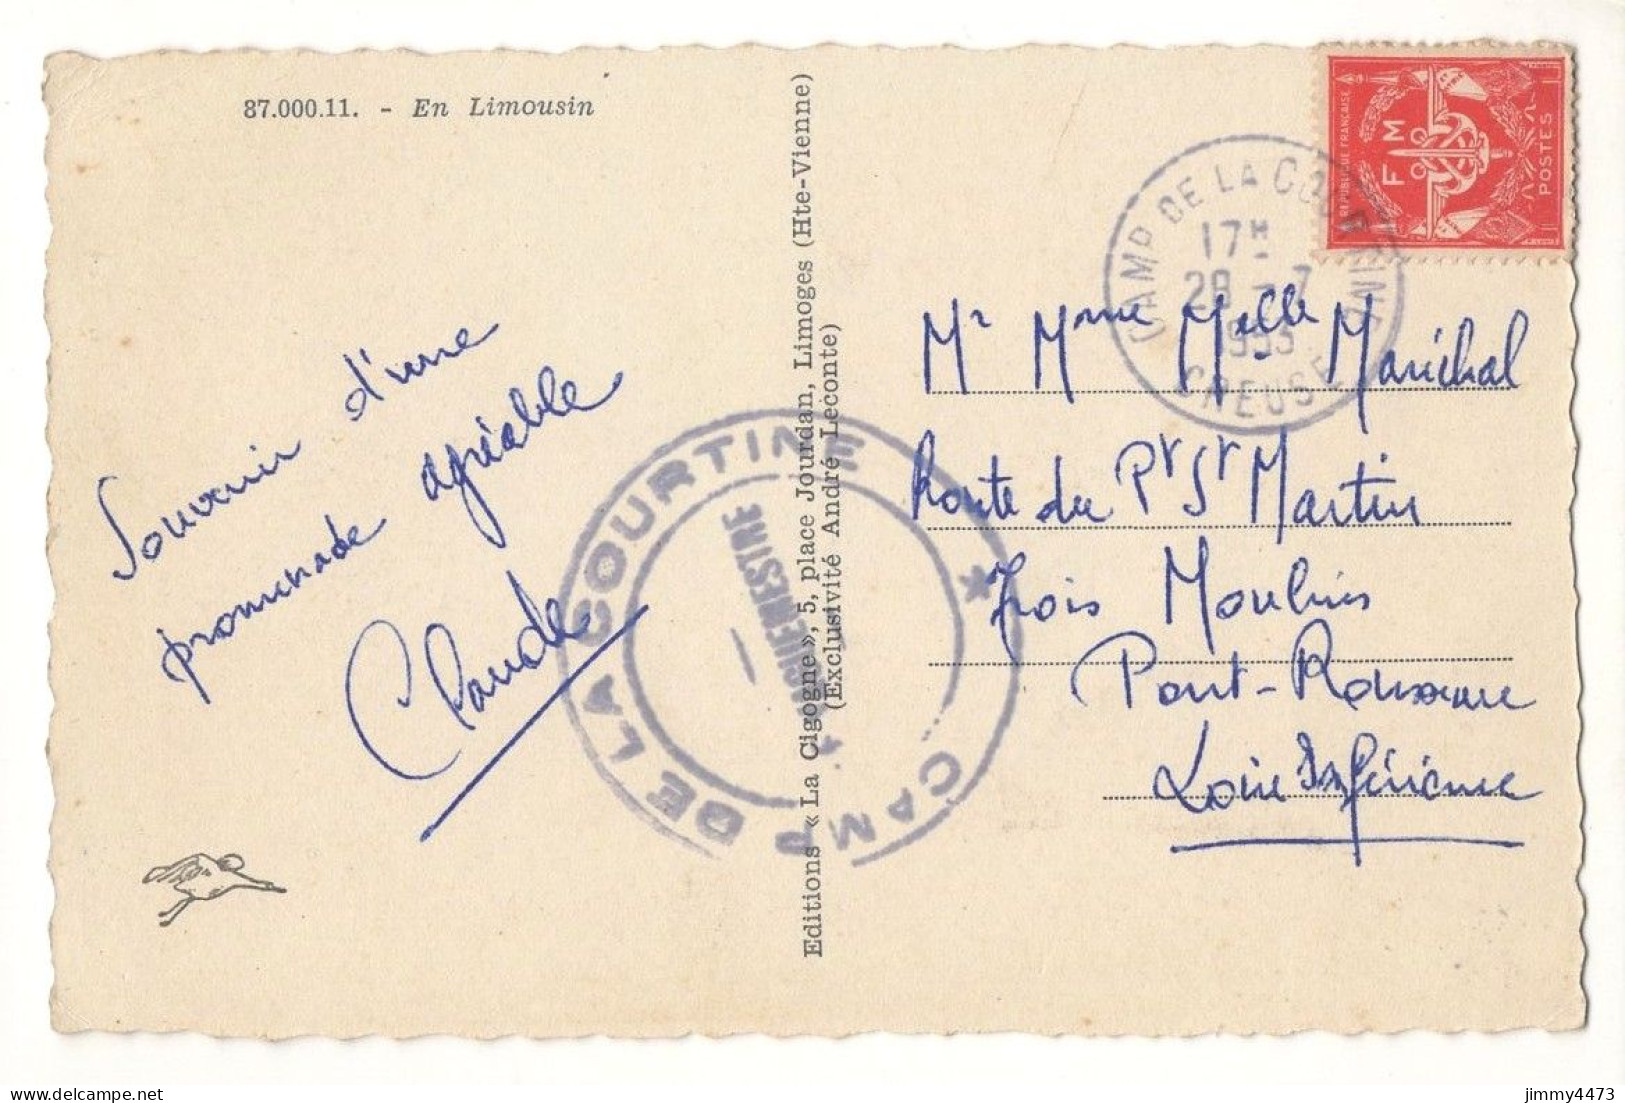 87.000.11. - En Limousin
Souvenir d'une
promenade agréable
Claude
Editions « La Cigogne », 5, place Jourdan, Limoges (Hte-Vienne)
(Exclusivité André Leconte)
CAMP DE LA COURTINE *
CAMP DE LA COURTINE
17H
28 - 7
1953
CREUSE
REPUBLIQUE FRANÇAISE
F M
POSTES
Mr Mme Melle Maréchal
Route du Pt St Martin
Trois Moulins
Pont-Rousseau
Loire Inférieure
jimmy4473